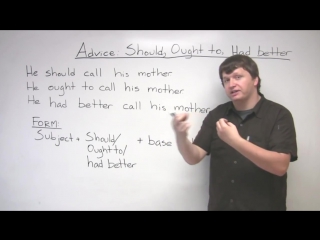 Advice: Should, Ought to, Had better
He should call his mother
He ought to call his mother
He had better call his mother
FORM:
Subject + Should/ + base
Ought to/
had better